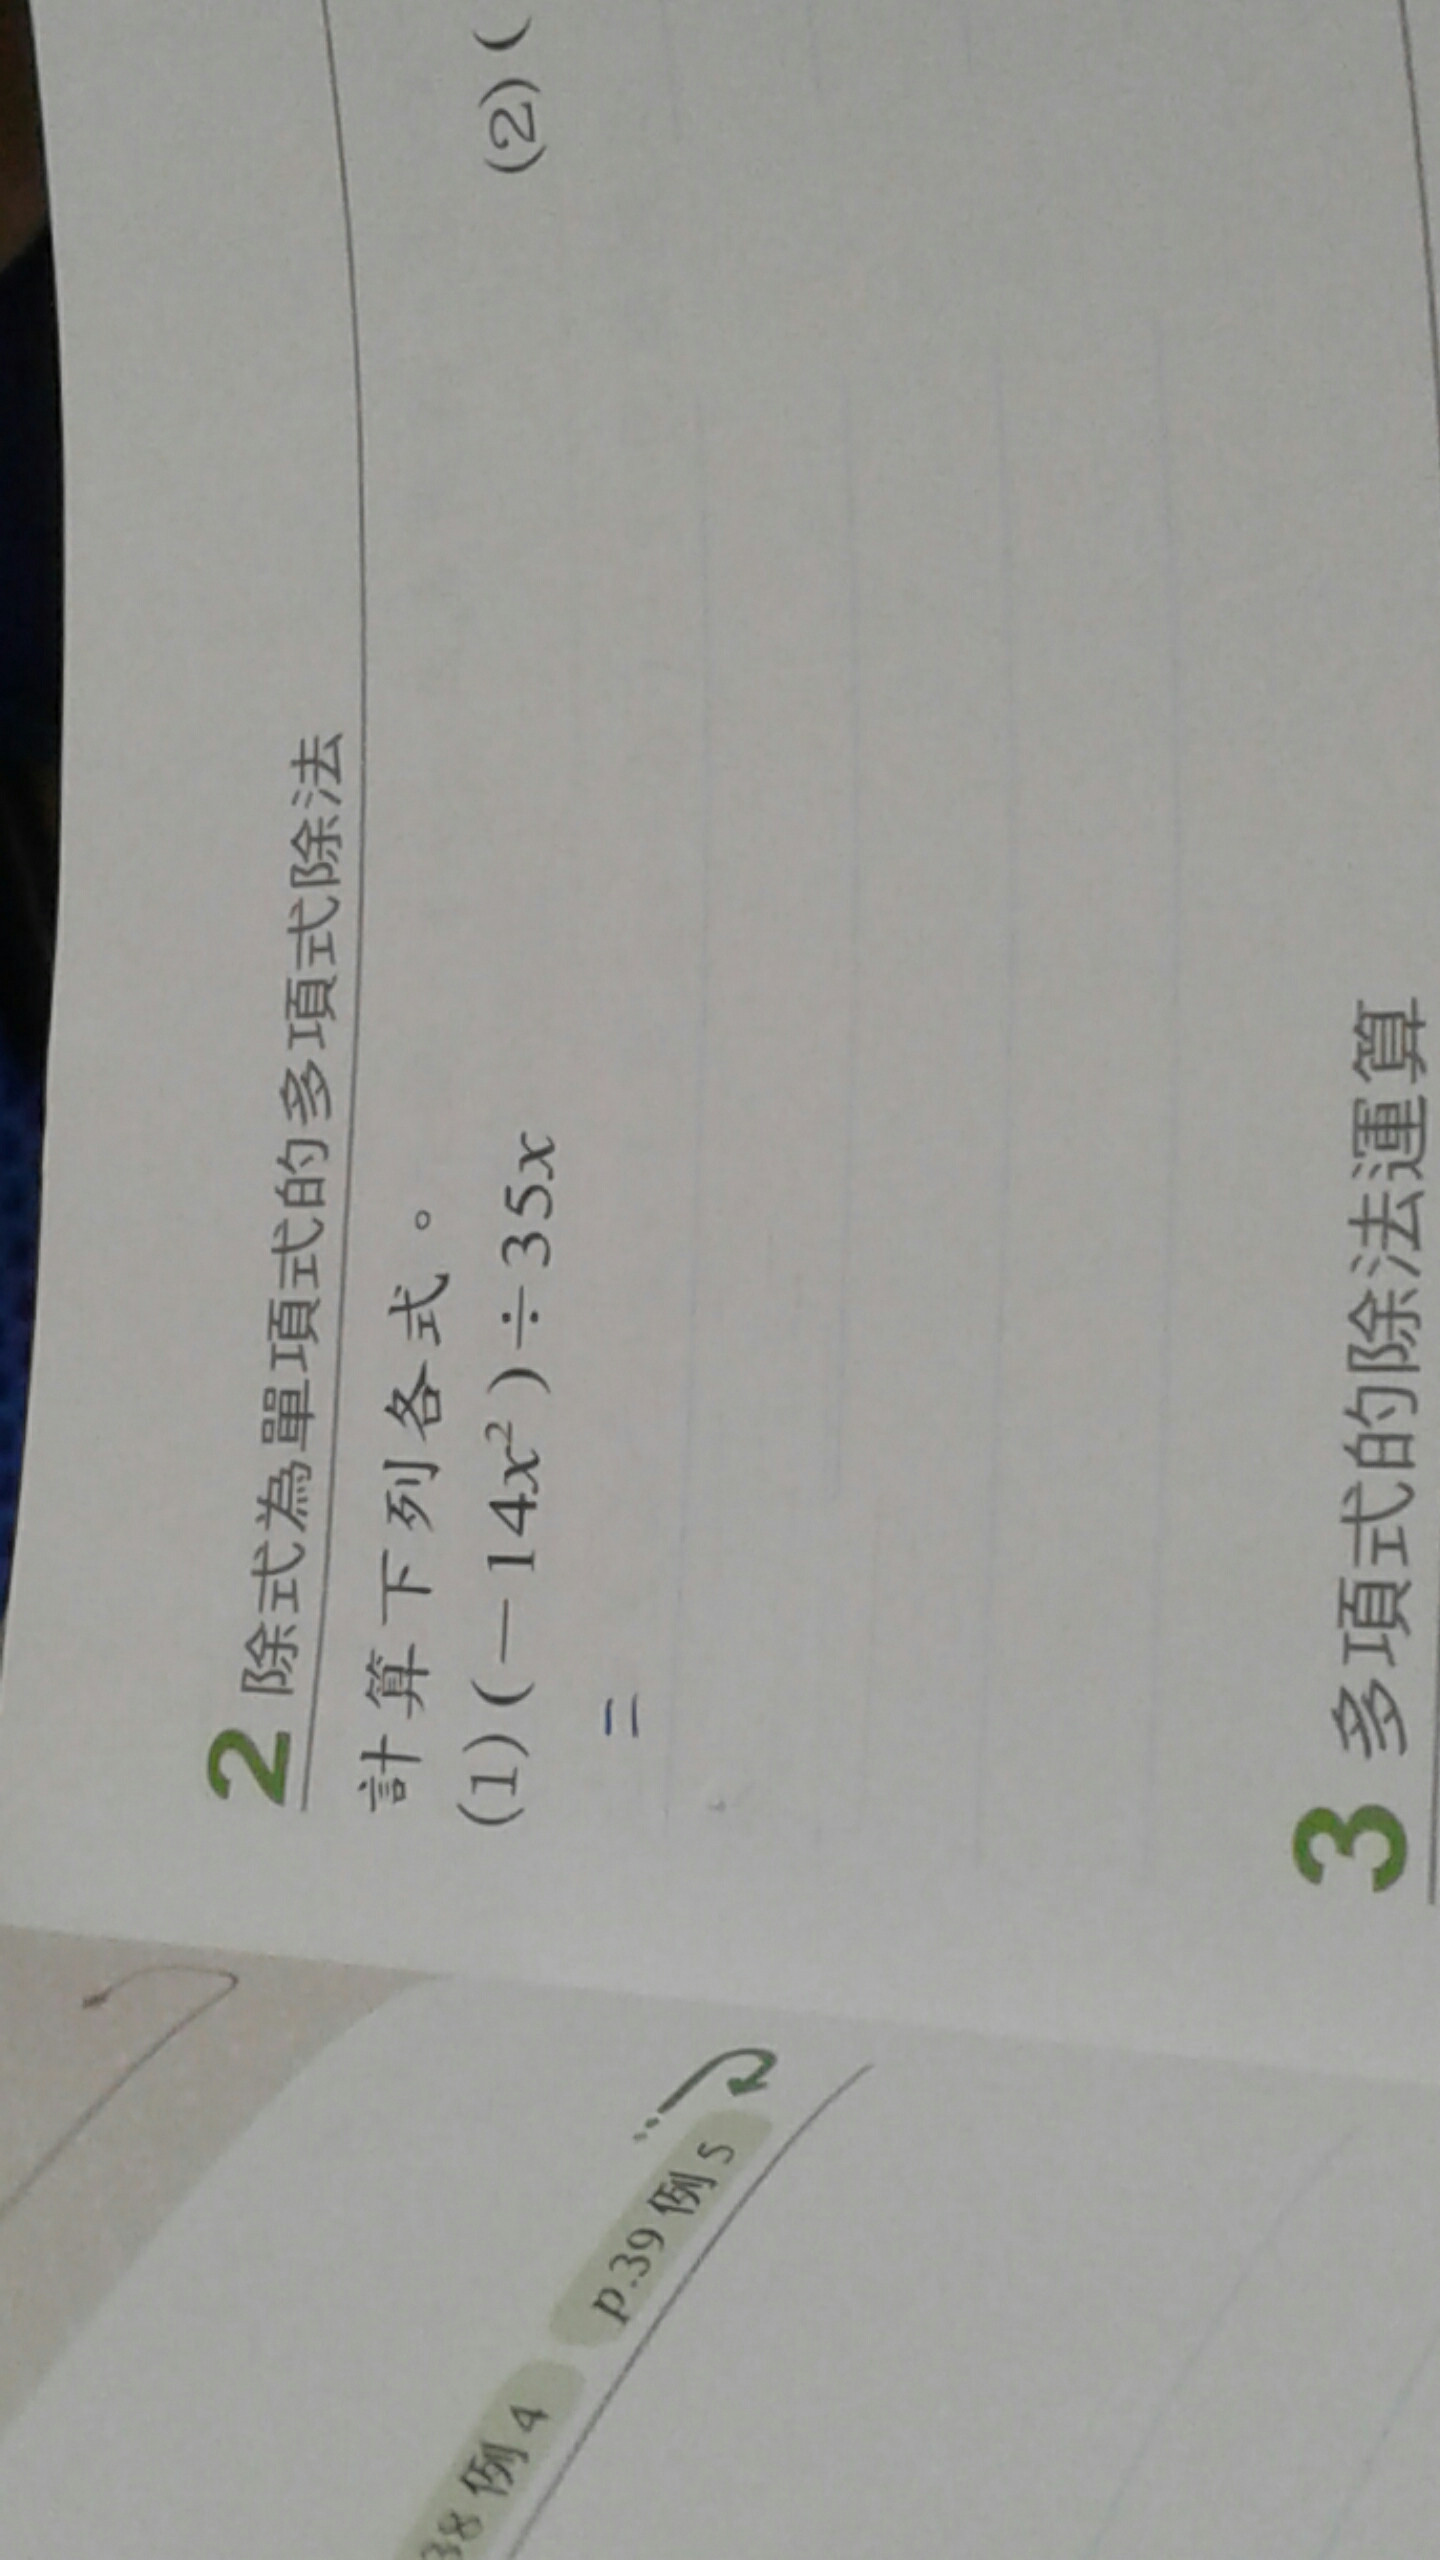 2 除式為單項式的多項式除法
計算下列各式。
(1)(－14x²)÷35x
(2)(
=
3 多項式的除法運算
38 例4 p.39 例5